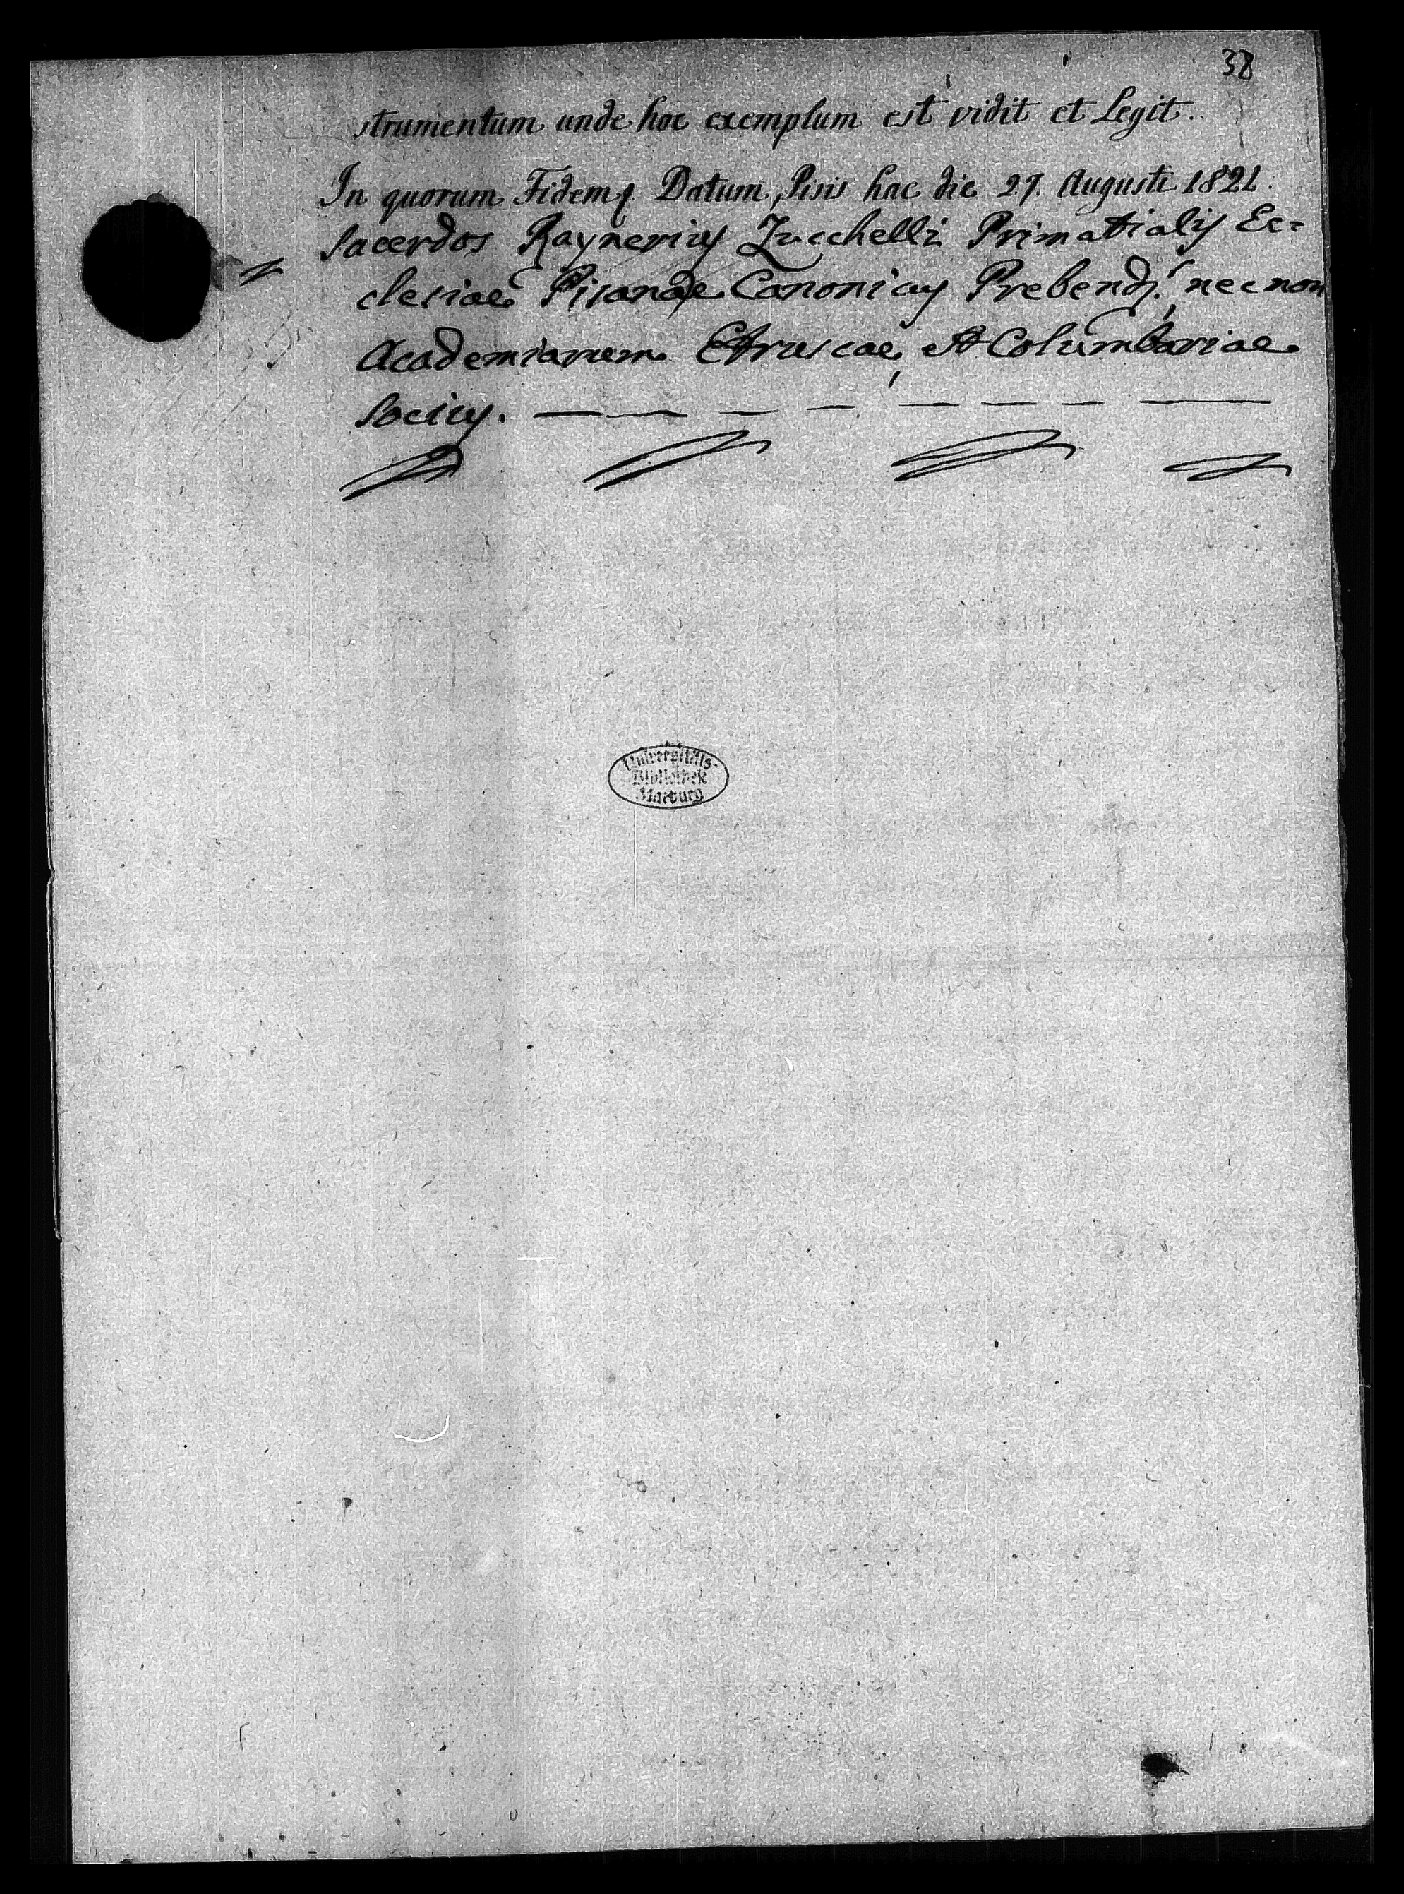 38
strumentum unde hoc exemplum est vidit et Legit.
In quorum Fidem Datum Pisis hac die 27. Augusti 1821.
Sacerdos Raynerius Zucchelli Primatialis Ec=
clesiae Pisanae Canonicus Prebend. necnon
Academiarum Etruscae, et Columbariae
Socius.
Universitäts-
Bibliothek
Marburg